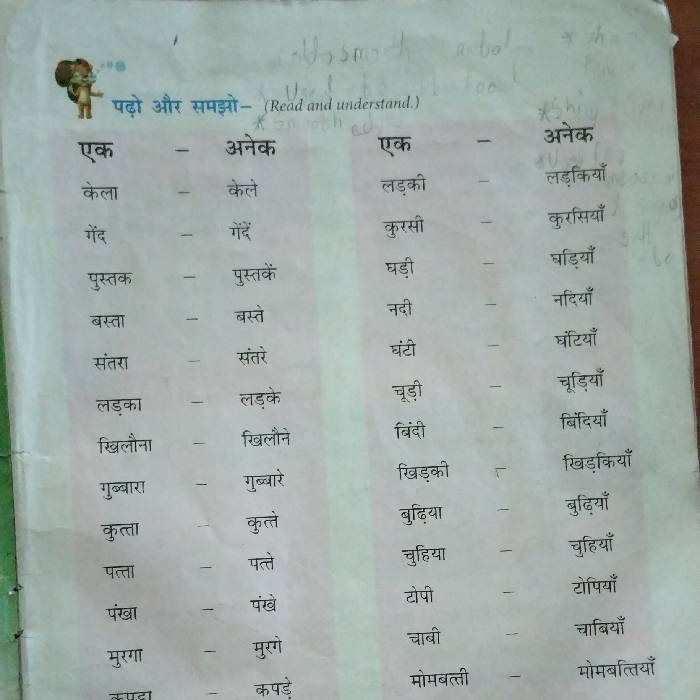 पढ़ो और समझो– (Read and understand.)
एक – अनेक
केला – केले
गेंद – गेंदें
पुस्तक – पुस्तकें
बस्ता – बस्ते
संतरा – संतरे
लड़का – लड़के
खिलौना – खिलौने
गुब्बारा – गुब्बारे
कुत्ता – कुत्ते
पत्ता – पत्ते
पंखा – पंखे
मुरगा – मुरगे
कपड़ा – कपड़े
एक – अनेक
लड़की – लड़कियाँ
कुरसी – कुरसियाँ
घड़ी – घड़ियाँ
नदी – नदियाँ
घंटी – घंटियाँ
चूड़ी – चूड़ियाँ
बिंदी – बिंदियाँ
खिड़की – खिड़कियाँ
बुढ़िया – बुढ़ियाँ
चुहिया – चुहियाँ
टोपी – टोपियाँ
चाबी – चाबियाँ
मोमबत्ती – मोमबत्तियाँ